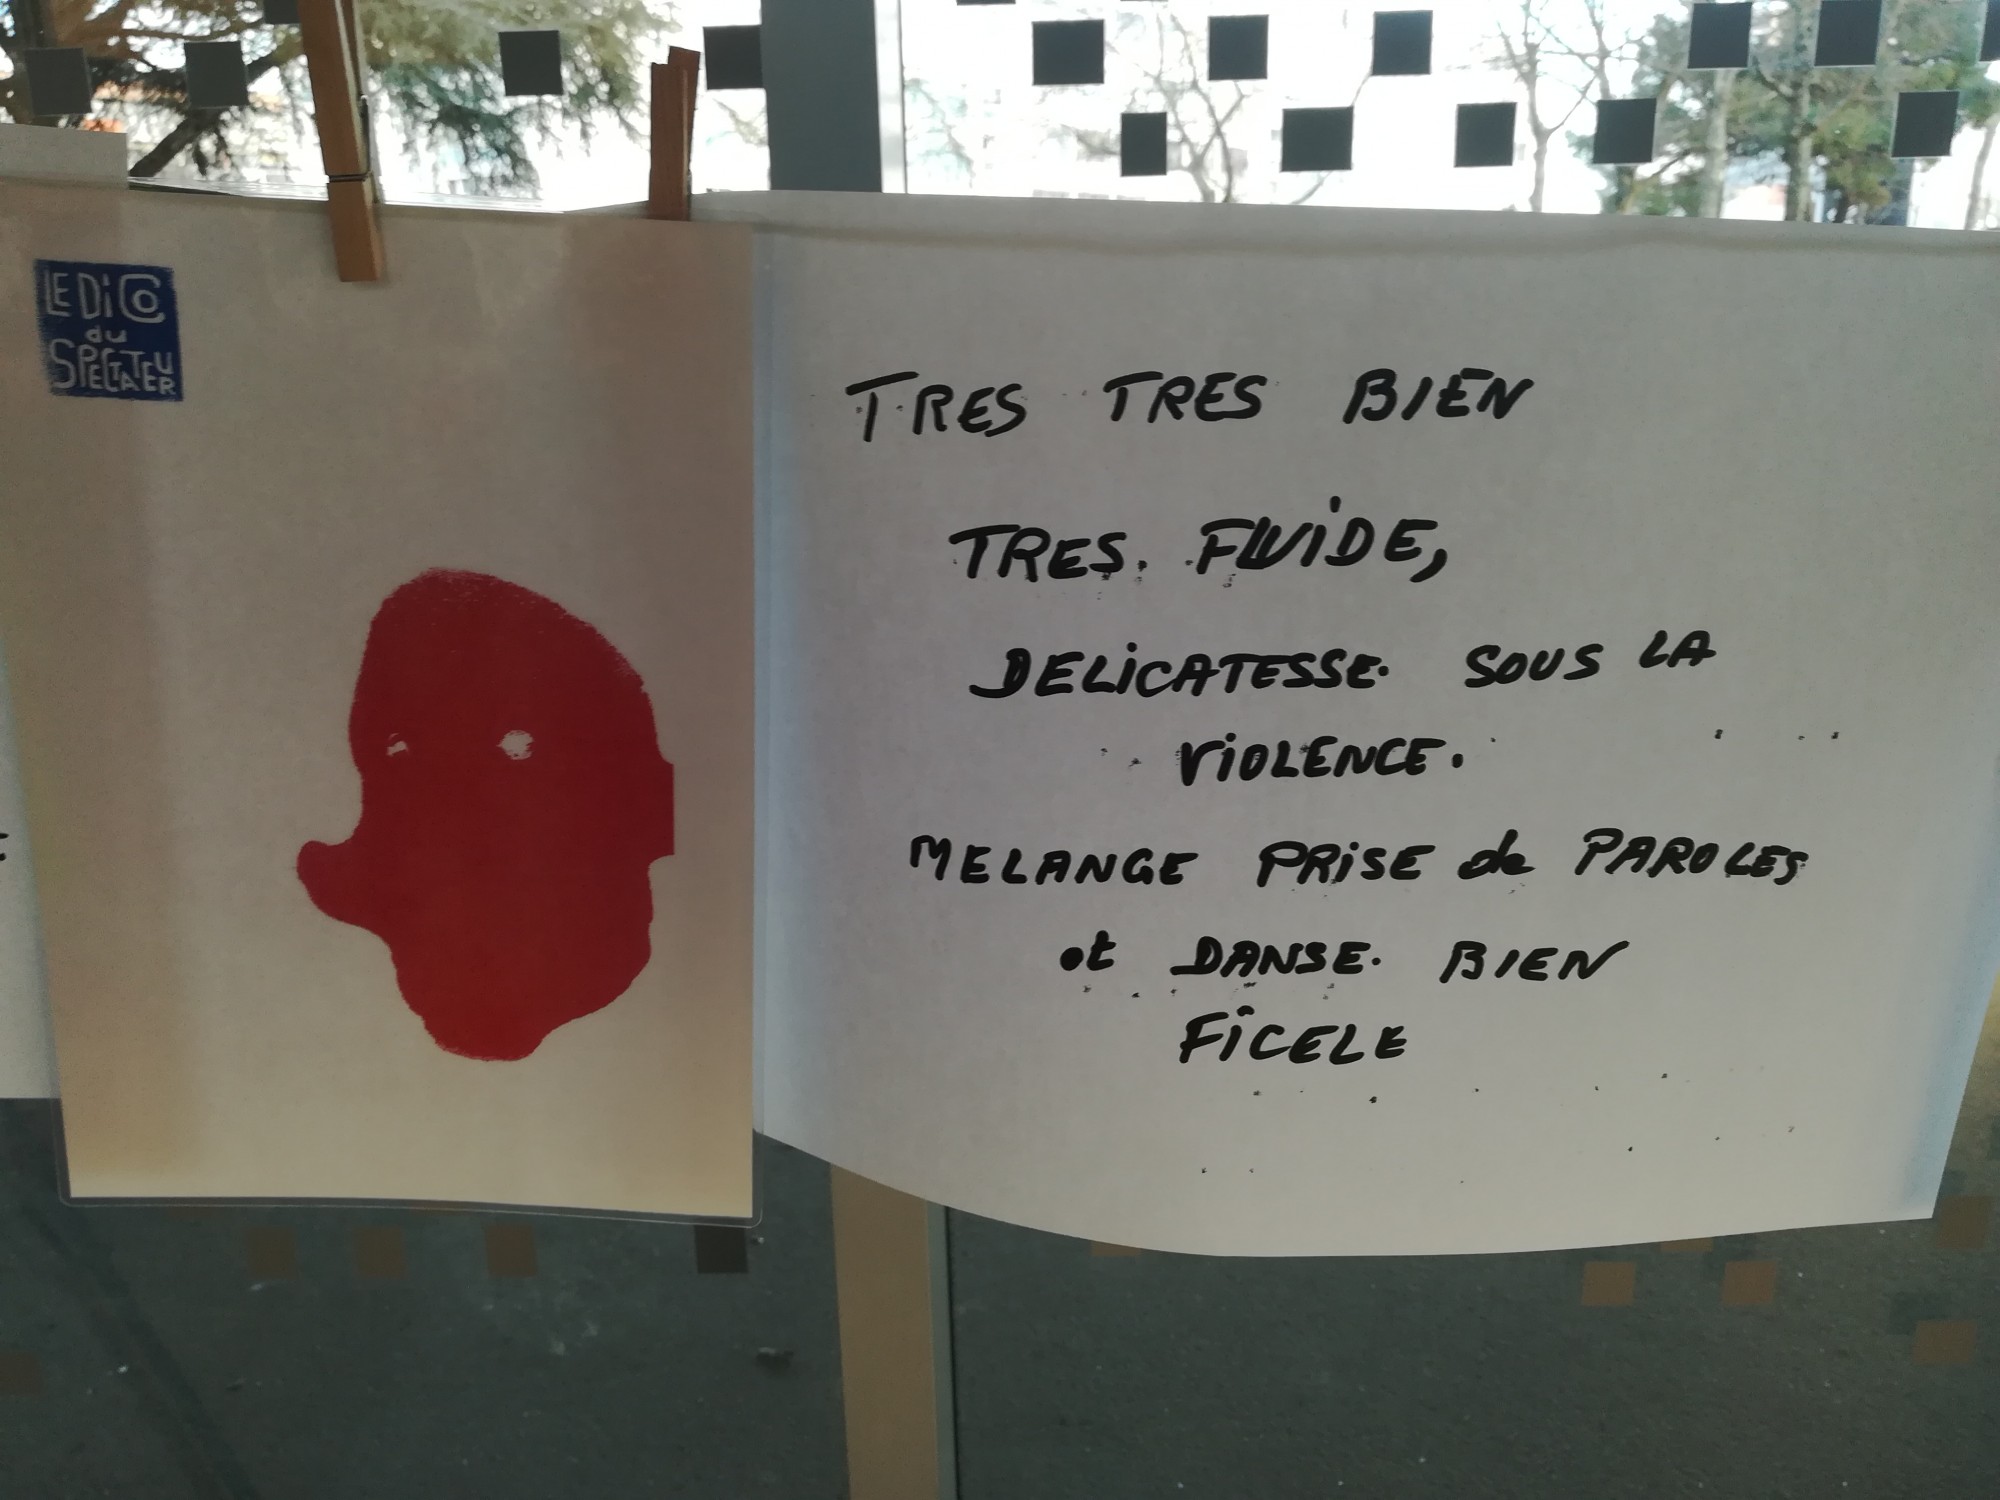 LE DiCO
du
SPECTATEUR
TRES TRES BIEN
TRES. FLUiDE,
DELiCATESSE. SOUS LA
ViOLENCE.
MELANGE PRiSE de PAROLES
et DANSE. BIEN
FiCELE